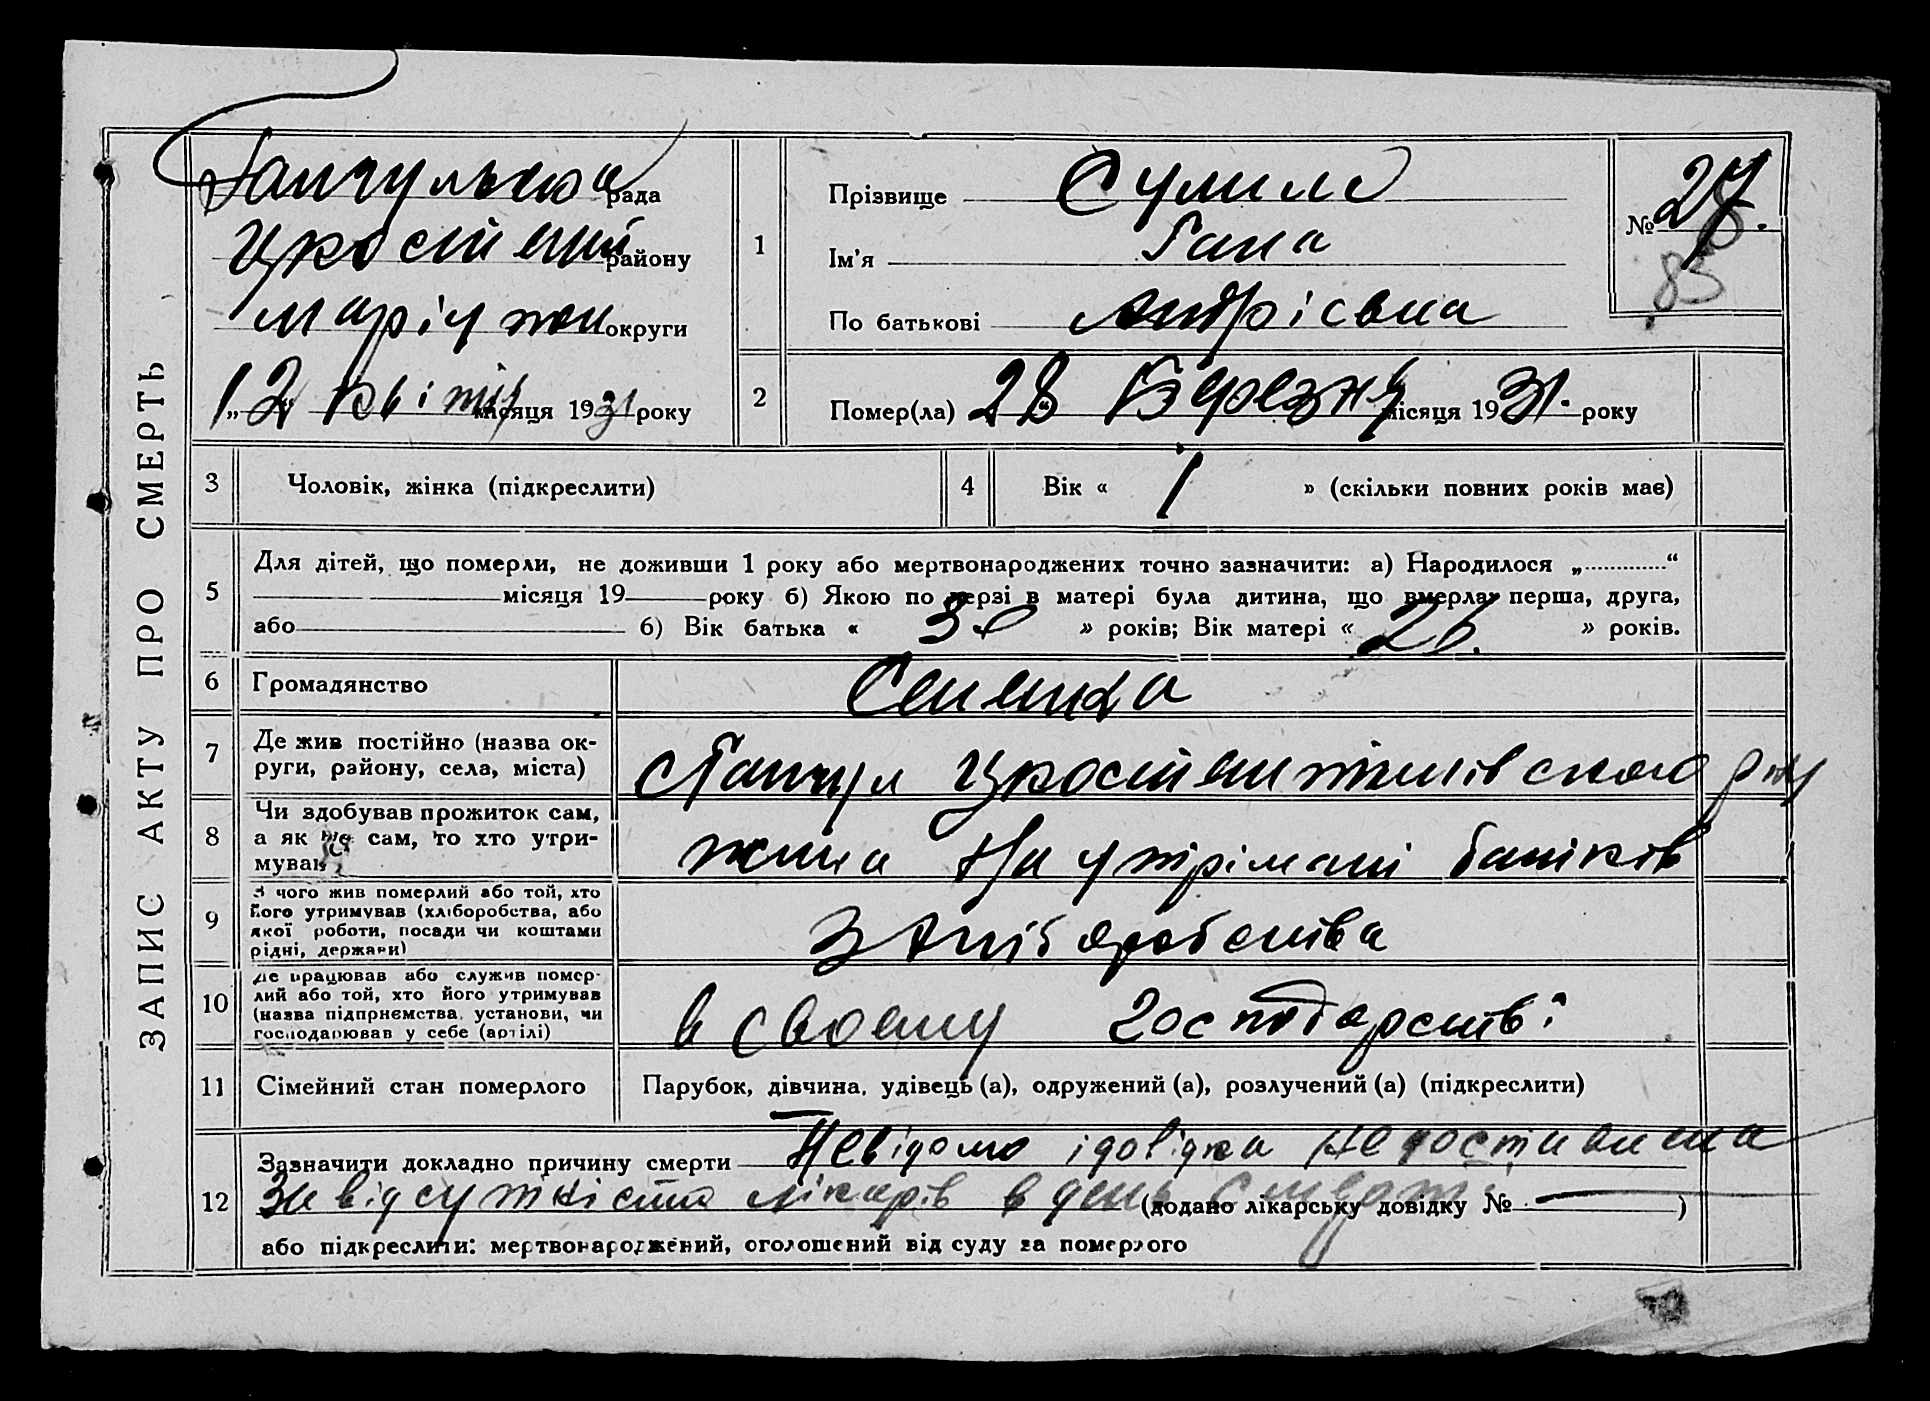 ЗАПИС АКТУ ПРО СМЕРТЬ
рада
району
округи
"12" квітня місяця 1931 року
1
Прізвище Сулима
Ім'я Гана
По батькові Андрієвна
№ 27.
83
2
Помер(ла) 28 Березня місяця 1931. року
3 Чоловік, жінка (підкреслити)
4 Вік « 1 » (скільки повних років має)
5 Для дітей, що померли, не доживши 1 року або мертвонароджених точно зазначити: а) Народилося „ “
місяця 19 року б) Якою по черзі в матері була дитина, що вмерла: перша, друга,
або б) Вік батька « 30 » років; Вік матері « 26. » років.
6 Громадянство Селянка
7 Де жив постійно (назва округи, району, села, міста)
8 Чи здобував прожиток сам, а як не сам, то хто утримував жила На утрімані батьків
9 З чого жив померлий або той, хто його утримував (хліборобства, або якої роботи, посади чи коштами рідні, держави) З хліборобства
10 Де працював або служив померлий або той, хто його утримував (назва підприємства, установи, чи господарював у себе (артілі) в своему господарстві
11 Сімейний стан померлого Парубок, дівчина, удівець (а), одружений (а), розлучений (а) (підкреслити)
12 Зазначити докладно причину смерти Невідомо і довідка не доставлена
За відсутністю лікарів в день смерти (додано лікарську довідку № — )
або підкреслити: мертвонароджений, оголошений від суду за померлого